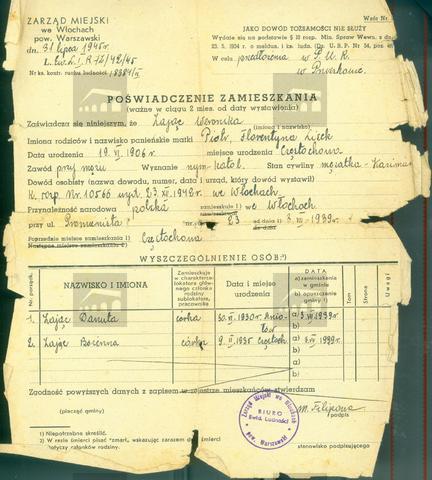 ZARZĄD MIEJSKI
we Włochach
pow. Warszawski
dn. 31 lipca 1945 r.
Nr ks. kontr. ruchu ludności 18384/II
Wzór Nr.
JAKO DOWÓD TOŻSAMOŚCI NIE SŁUŻY
Wydaje się na podstawie § 18 rozp. Min. Spraw Wewn. z dn.
23. 5. 1934 r. o meldun. i ks. ludn. (Dz. U. R. P. Nr 54, poz.
W celu przedłożenia w P.U.R.
w Pruszkowie
POŚWIADCZENIE ZAMIESZKANIA
(ważne w ciągu 2 mies. od daty wystawienia)
Zaświadcza się niniejszym, że Zając Weronika
(imiona i nazwisko)
Imiona rodziców i nazwisko panieńskie matki Piotr, Florentyna
Data urodzenia 19. II. 1906 r. miejsce urodzenia Częstochowa
Zawód przy mężu Wyznanie rzym-katol. Stan cywilny mężatka-
Dowód osobisty (nazwa dowodu, numer, data i urząd, który dowód wystawił)
K. rozp. Nr. 10566 wyst. 23. VII. 1942 r. we Włochach.
Przynależność narodowa polska zamieszkuje 1) we Włochach
przy ul. Nr 23 od dnia 3. VII - 1939 r.
Poprzednie miejsce zamieszkania 1) Częstochowa
Następne miejsce zamieszkania 1)
WYSZCZEGÓLNIENIE OSÓB:2)
Nr. porządk.
NAZWISKO I IMIONA
Zamieszkuje w charakterze: lokatora główn. członka rodziny sublokatora, pracownika
Data i miejsce urodzenia
DATA
a) zamieszkania w gminie
b) opuszczenia gminy
Tom
Strona
Uwagi
1. Zając Danuta córka 30. II. 1930 r. Aniołów a) 3 VII 1939 r.
b)
2. Zając Bożenna córka 9. II. 1935 Częstoch. a)
b)
a)
b)
Zgodność powyższych danych z zapisem w rejestrze mieszkańców stwierdzam
(pieczęć gminy)
Zarząd Miejski we Włochach
BIURO
Ewid. Ludności
pow. Warszawski
M. Filipowa
podpis
stanowisko podpisującego
1) Niepotrzebne skreślić.
2) W razie śmierci pisać "zmarł", wskazując zarazem śmierci
dotyczy członków rodziny.